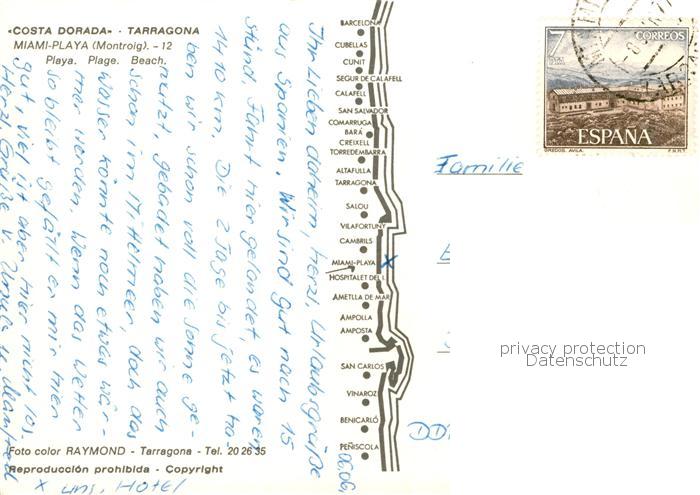 «COSTA DORADA» - TARRAGONA
MIAMI-PLAYA (Montroig). - 12
Playa. Plage. Beach.
Ihr Lieben daheim, herzl. Urlaubsgrüße
aus Spanien. Wir sind gut nach 15
Stund. Fahrt hier gelandet, es waren
1410 km. Die 2 Tage bis jetzt ha-
ben wir schon voll die Sonne ge-
nutzt, gebadet haben wir auch
schon im Mittelmeer, doch das
Wasser könnte noch etwas wär-
mer werden. Wenn das Wetter
so bleibt gefällt es mir hier
gut. Viel ist aber hier nicht los.
Herzl. Grüße v. Ursula u. Manfred
x uns. HOTEL
Foto color RAYMOND - Tarragona - Tel. 20 26 35
Reproducción prohibida - Copyright
BARCELONA
CUBELLAS
CUNIT
SEGUR DE CALAFELL
CALAFELL
SAN SALVADOR
COMARRUGA
BARÁ
CREIXELL
TORREDEMBARRA
ALTAFULLA
TARRAGONA
SALOU
VILAFORTUNY
CAMBRILS
MIAMI-PLAYA x
HOSPITALET DEL I.
AMETLLA DE MAR
AMPOLLA
AMPOSTA
SAN CARLOS
VINAROZ
BENICARLÓ
PEÑISCOLA
7 PTAS CORREOS
ESPAÑA
GREDOS, AVILA. F.N.M.T.
Familie
privacy protection
Datenschutz